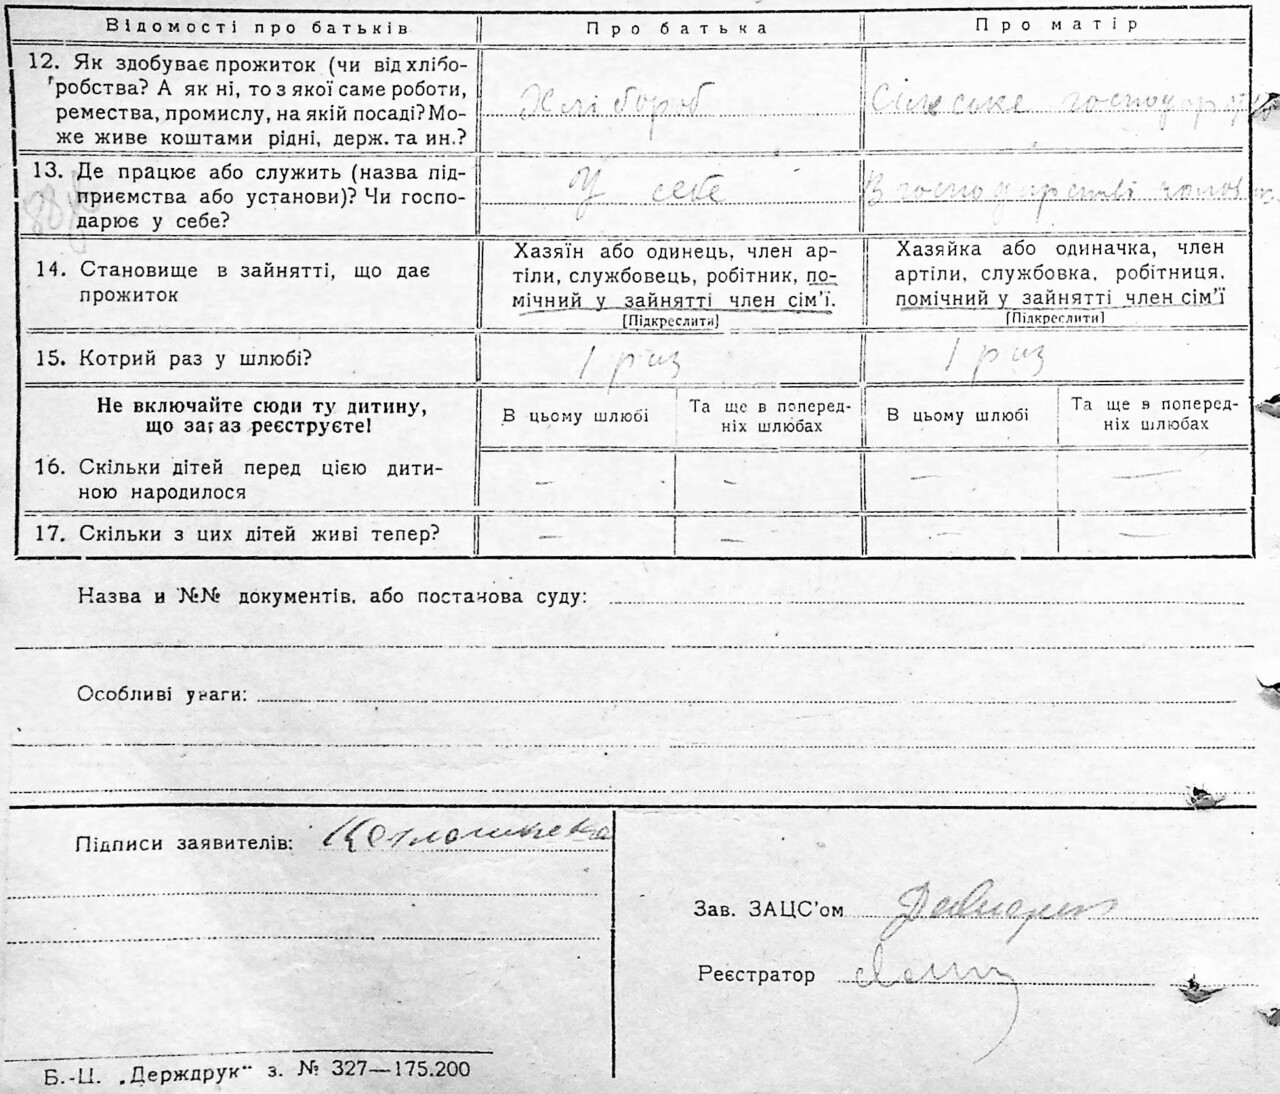 Відомості про батьків Про батька Про матір
12. Як здобуває прожиток (чи від хлібо-
робства? А як ні, то з якої саме роботи,
ремества, промислу, на якій посаді? Мо-
же живе коштами рідні, держ. та ин.?
Хлібороб
Сільське господарство
13. Де працює або служить (назва під-
приємства або установи)? Чи госпо-
дарює у себе?
У себе
В господарстві чолов
14. Становище в зайнятті, що дає
прожиток
Хазяїн або одинець, член ар-
тіли, службовець, робітник, по-
мічний у зайнятті член сім'ї.
[Підкреслити]
Хазяйка або одиначка, член
артіли, службовка, робітниця,
помічний у зайнятті член сім'ї
[Підкреслити]
15. Котрий раз у шлюбі?
1 раз
1 раз
Не включайте сюди ту дитину,
що зараз реєструєте!
В цьому шлюбі
Та ще в поперед-
ніх шлюбах
В цьому шлюбі
Та ще в поперед-
ніх шлюбах
16. Скільки дітей перед цією дити-
ною народилося
– – – –
17. Скільки з цих дітей живі тепер?
– – – –
Назва и №№ документів, або постанова суду:
Особливі уваги:
Підписи заявителів:
Зав. ЗАЦС'ом
Реєстратор
Б.-Ц. „Держдрук" з. № 327—175.200